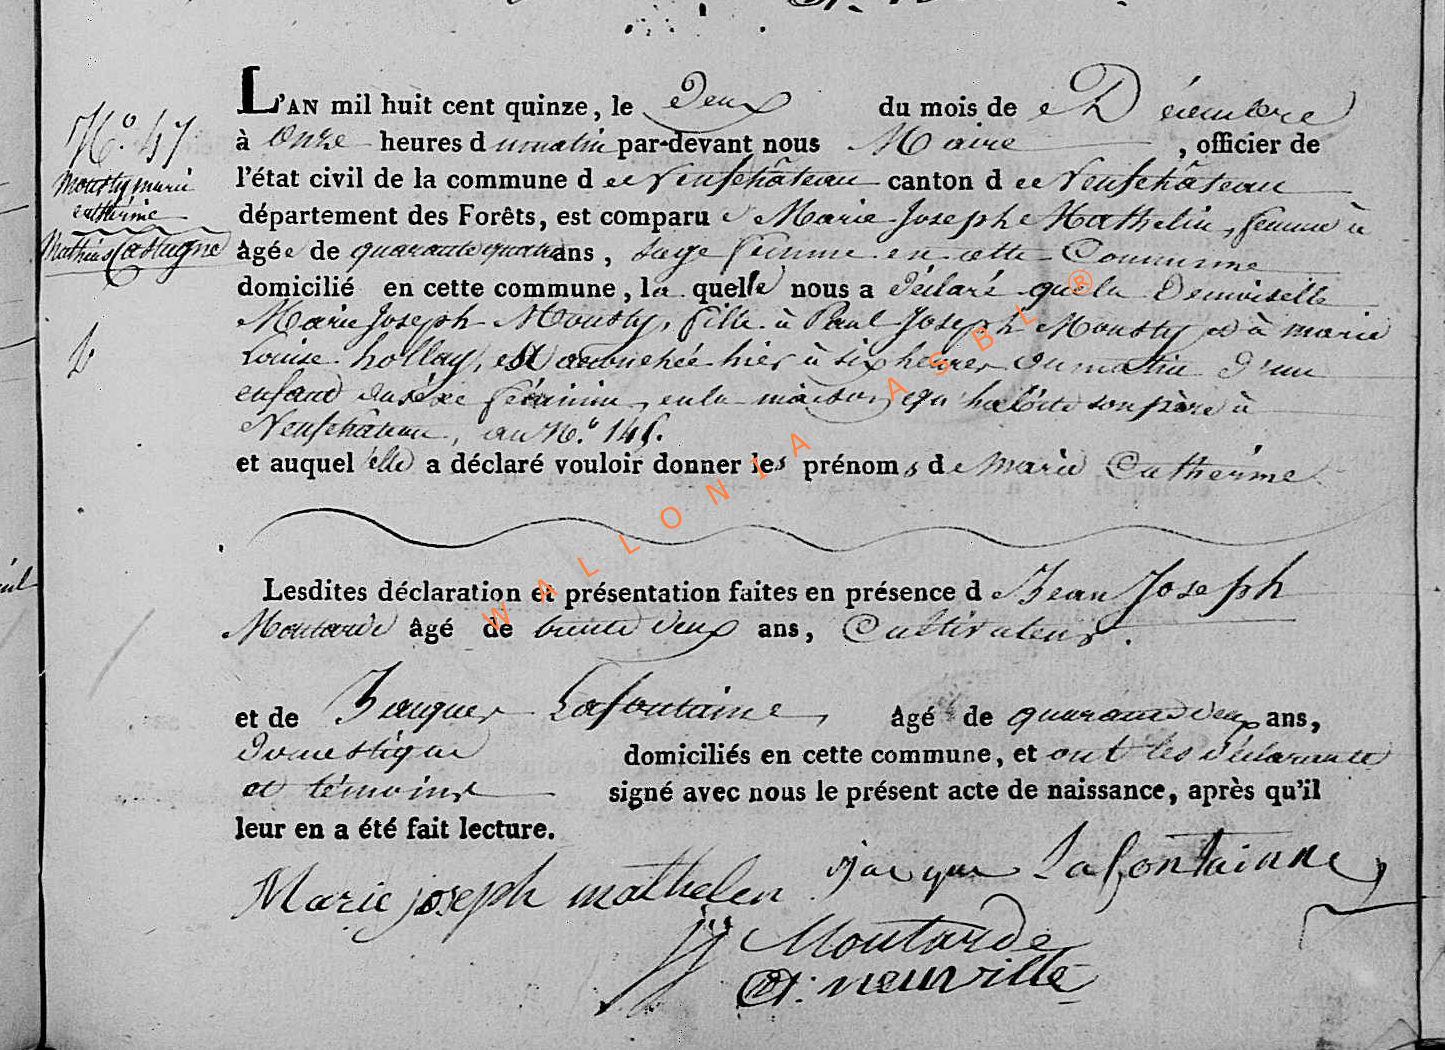 N.o 47
Mousty marie
catherine
Mathias Castagne
L'AN mil huit cent quinze, le Deux du mois de Décembre
à Onze heures du matin par-devant nous Maire, officier de
l'état civil de la commune de Neufchâteau canton de Neufchâteau
département des Forêts, est comparu Marie Joseph Mathelin, femme à
âgée de quarante quatre ans, sage femme en cette Commune
domicilié en cette commune, laquelle nous a déclaré que la Demoiselle
Marie Joseph Mousty, fille à Paul Joseph Mousty et à marie
Louise hollay, est accouchée hier à six heures du matin d'un
enfant du séxe féminin, en la maison qu'habite son père à
Neufchâteau, au N.o 145.
et auquel elle a déclaré vouloir donner les prénoms de Marie Catherine
Lesdites déclaration et présentation faites en présence de Jean Joseph
Moutarde âgé de trente deux ans, Cultivateur.
et de Jacques Lafontaine, âgé de quarante deux ans,
Domestique domiciliés en cette commune, et ont les déclarante
et témoins signé avec nous le présent acte de naissance, après qu'il
leur en a été fait lecture.
Marie joseph mathelen jacque Lafontainne
JJ Moutarde
neuville
WALLONIA ASBL ®